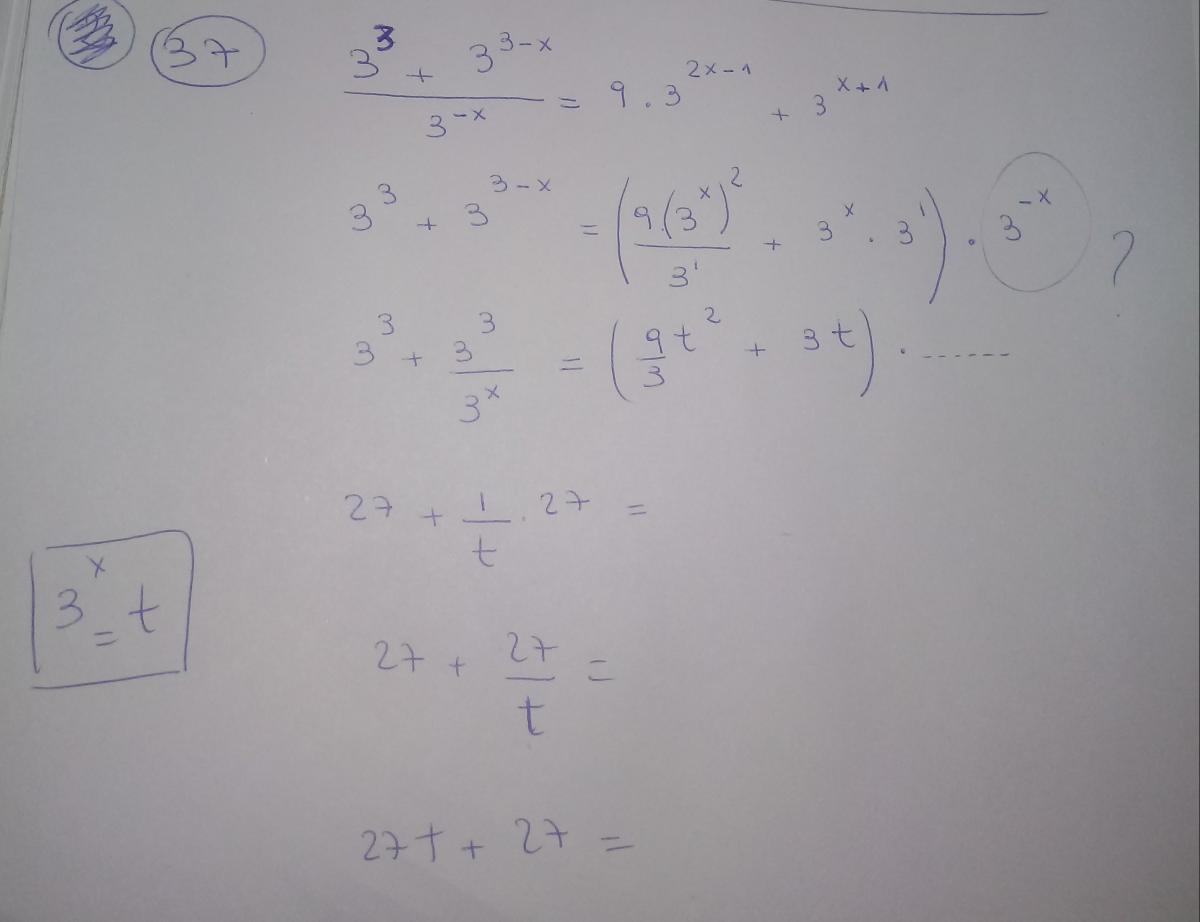 37
(3³ + 3^(3-x)) / 3^(-x) = 9 . 3^(2x-1) + 3^(x+1)
3³ + 3^(3-x) = (9.(3^x)² / 3¹ + 3^x . 3¹) . 3^(-x) ?
3³ + 3³/3^x = (9/3 t² + 3t) . ------
27 + 1/t . 27 =
3^x = t
27 + 27/t =
27t + 27 =